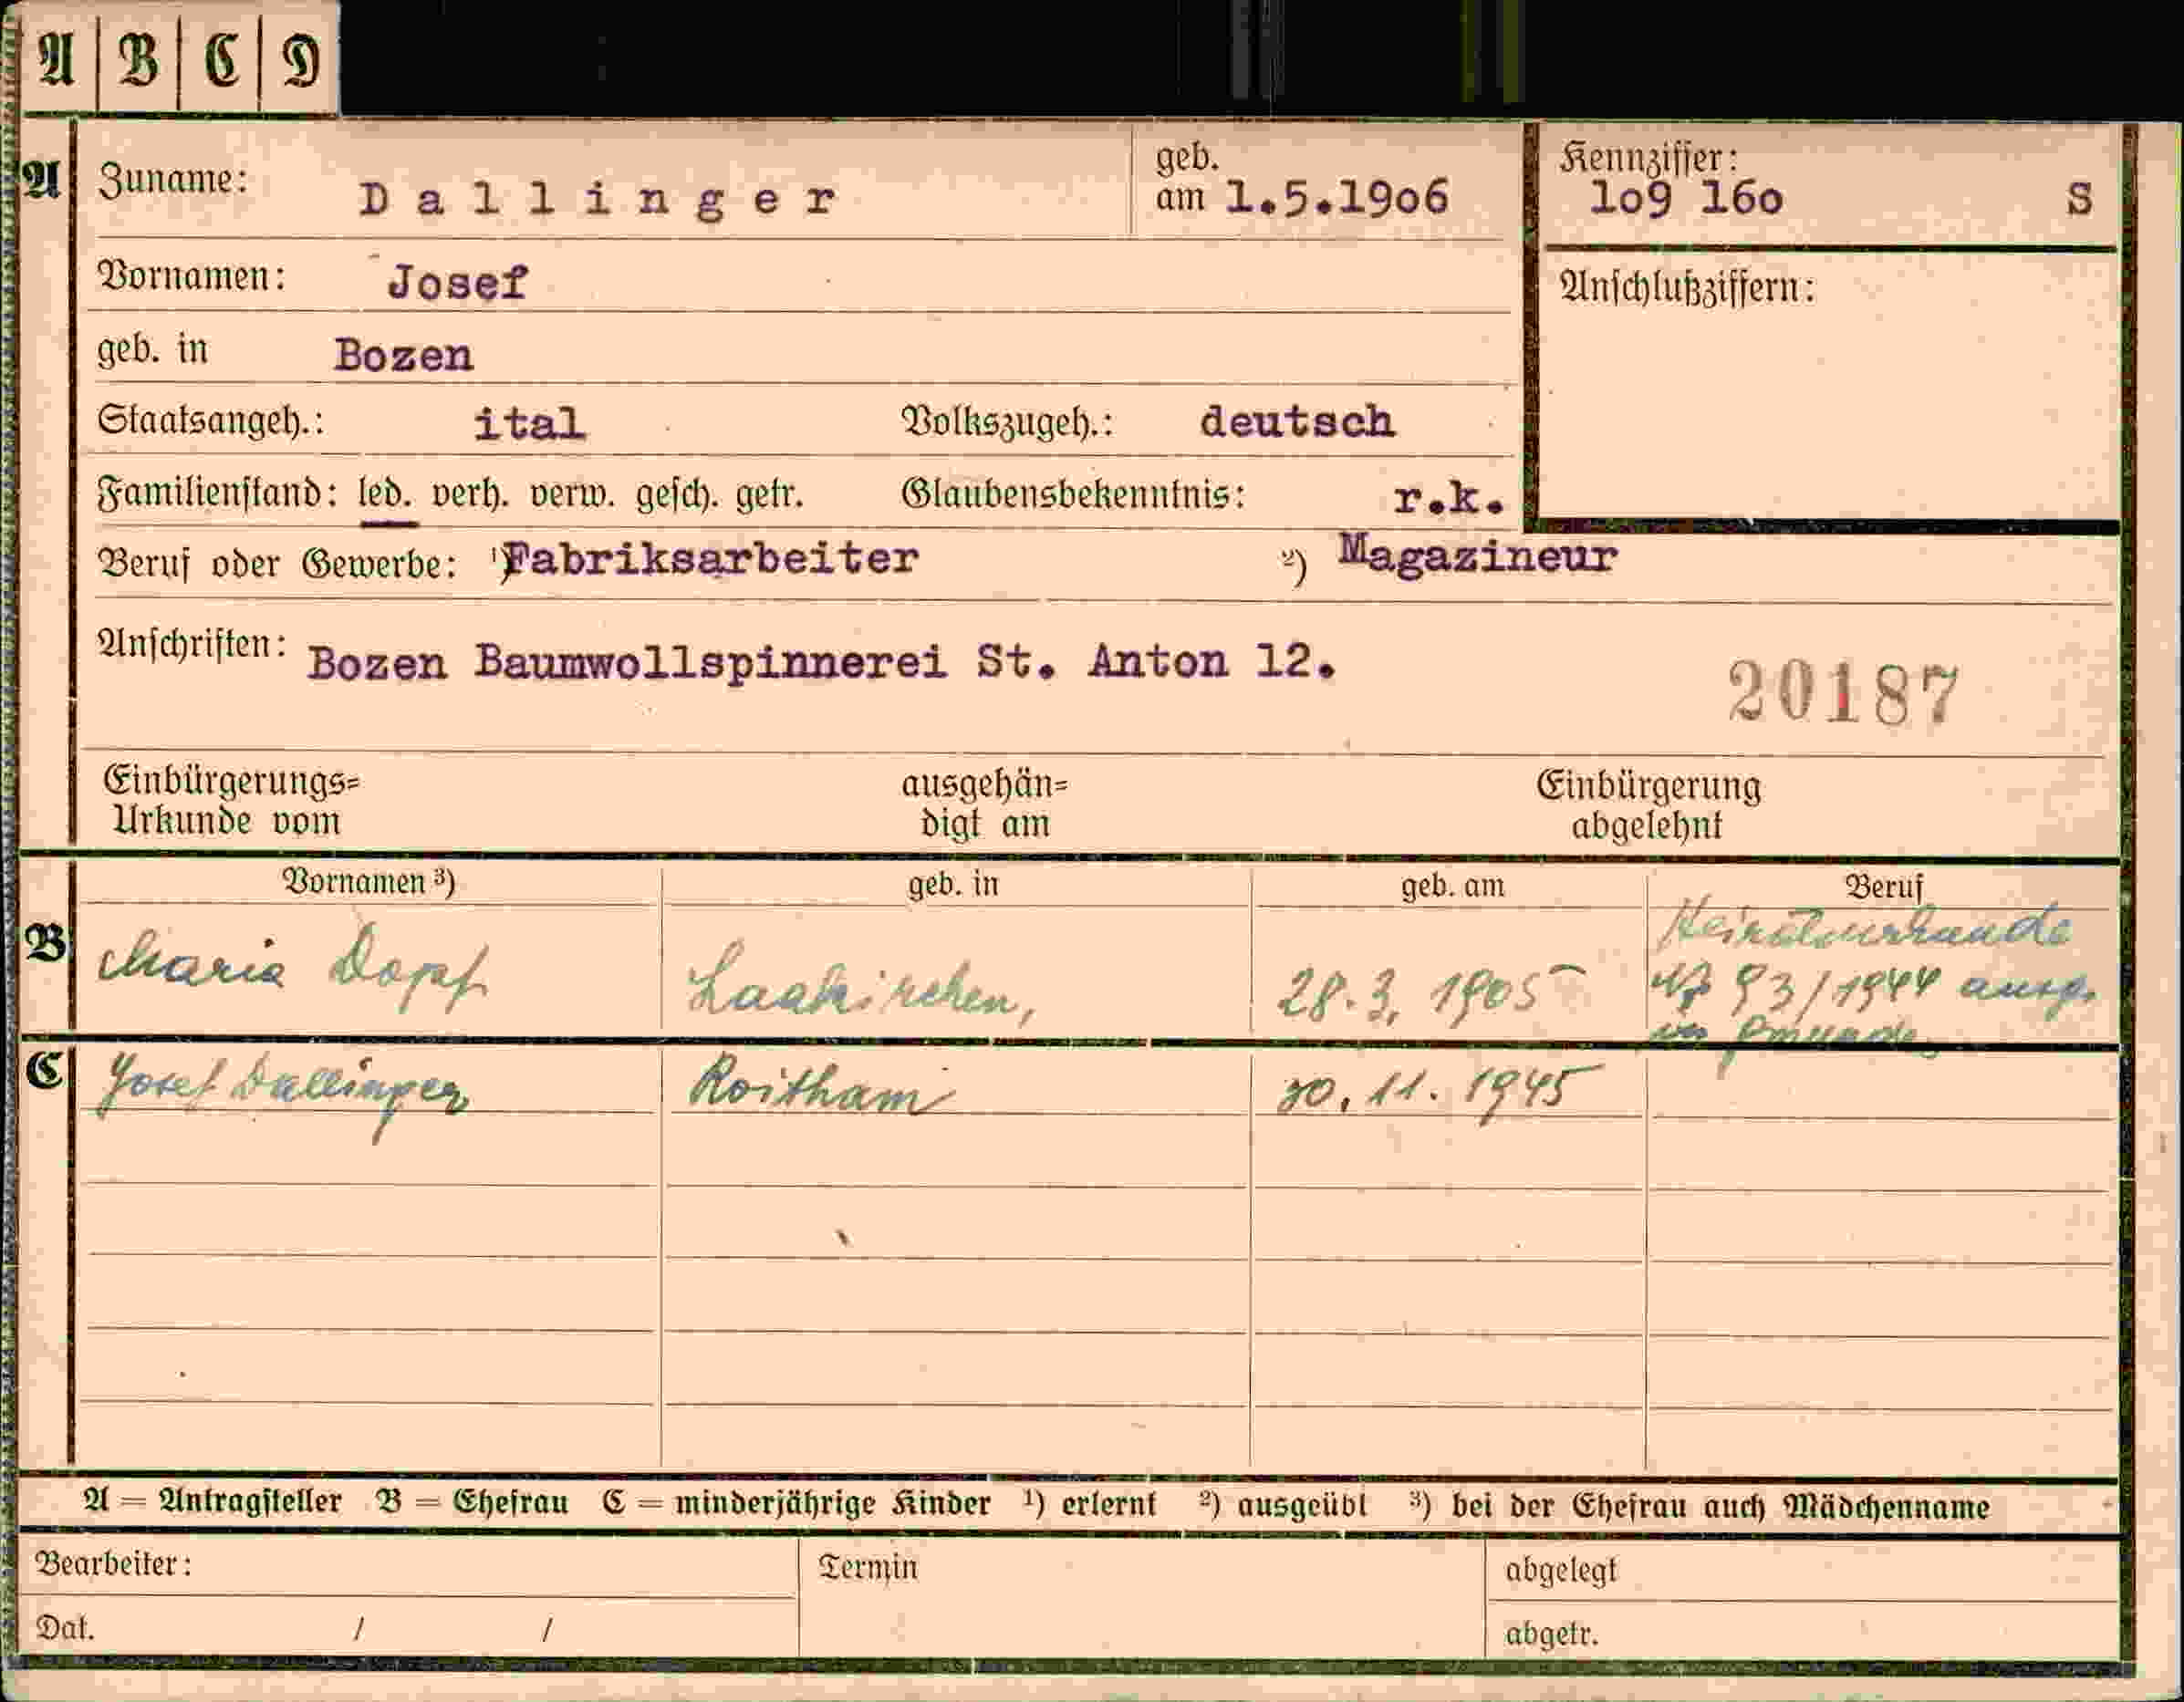 A B C D
A Zuname: Dallinger geb. am 1.5.1906 Kennziffer: 109 160 S
Vornamen: Josef Anschlußziffern:
geb. in Bozen
Staatsangeh.: ital Volkszugeh.: deutsch
Familienstand: led. verh. verw. gesch. getr. Glaubensbekenntnis: r.k.
Beruf oder Gewerbe: ¹) Fabriksarbeiter ²) Magazineur
Anschriften: Bozen Baumwollspinnerei St. Anton 12.
20187
Einbürgerungs= ausgehän= Einbürgerung
Urkunde vom digt am abgelehnt
Vornamen ³) geb. in geb. am Beruf
B Maria Dopf Laakirchen, 28.3. 1905 Heiratsurkunde
93/1944 ausg.
in Gmunden
C Josef Dallinger Roitham 30.11.1945
A = Antragsteller B = Ehefrau C = minderjährige Kinder ¹) erlernt ²) ausgeübt ³) bei der Ehefrau auch Mädchenname
Bearbeiter: Termin abgelegt
Dat. / / abgetr.